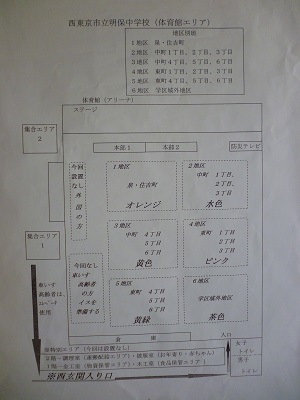 西東京市立明保中学校(体育館エリア)
地区別組
1地区 泉・住吉町
2地区 中町1丁目、2丁目、3丁目
3地区 中町4丁目、5丁目、6丁目
4地区 東町1丁目、2丁目、3丁目
5地区 東町4丁目、5丁目、6丁目
6地区 学区域外地区
体育館(アリーナ)
ステージ
集合エリア
2
本部1
本部2
防災テレビ
今回
設置
なし
外国の方
1地区
泉・住吉町
オレンジ
2地区
中町 1丁目、
2丁目、
3丁目
水色
3地区
中町 4丁目
5丁目
6丁目
黄色
4地区
東町 1丁目
2丁目
3丁目
ピンク
集合エリア
1
車いす
高齢者は
スロープ
使用
今回なし
車いす
高齢者
の方
イスを
準備する
5地区
東町 4丁目
5丁目
6丁目
黄緑
6地区
学区域外地区
茶色
倉庫
入口
女子
トイレ
男子
トイレ
※特別エリア(今回は設置なし)
※西玄関入り口